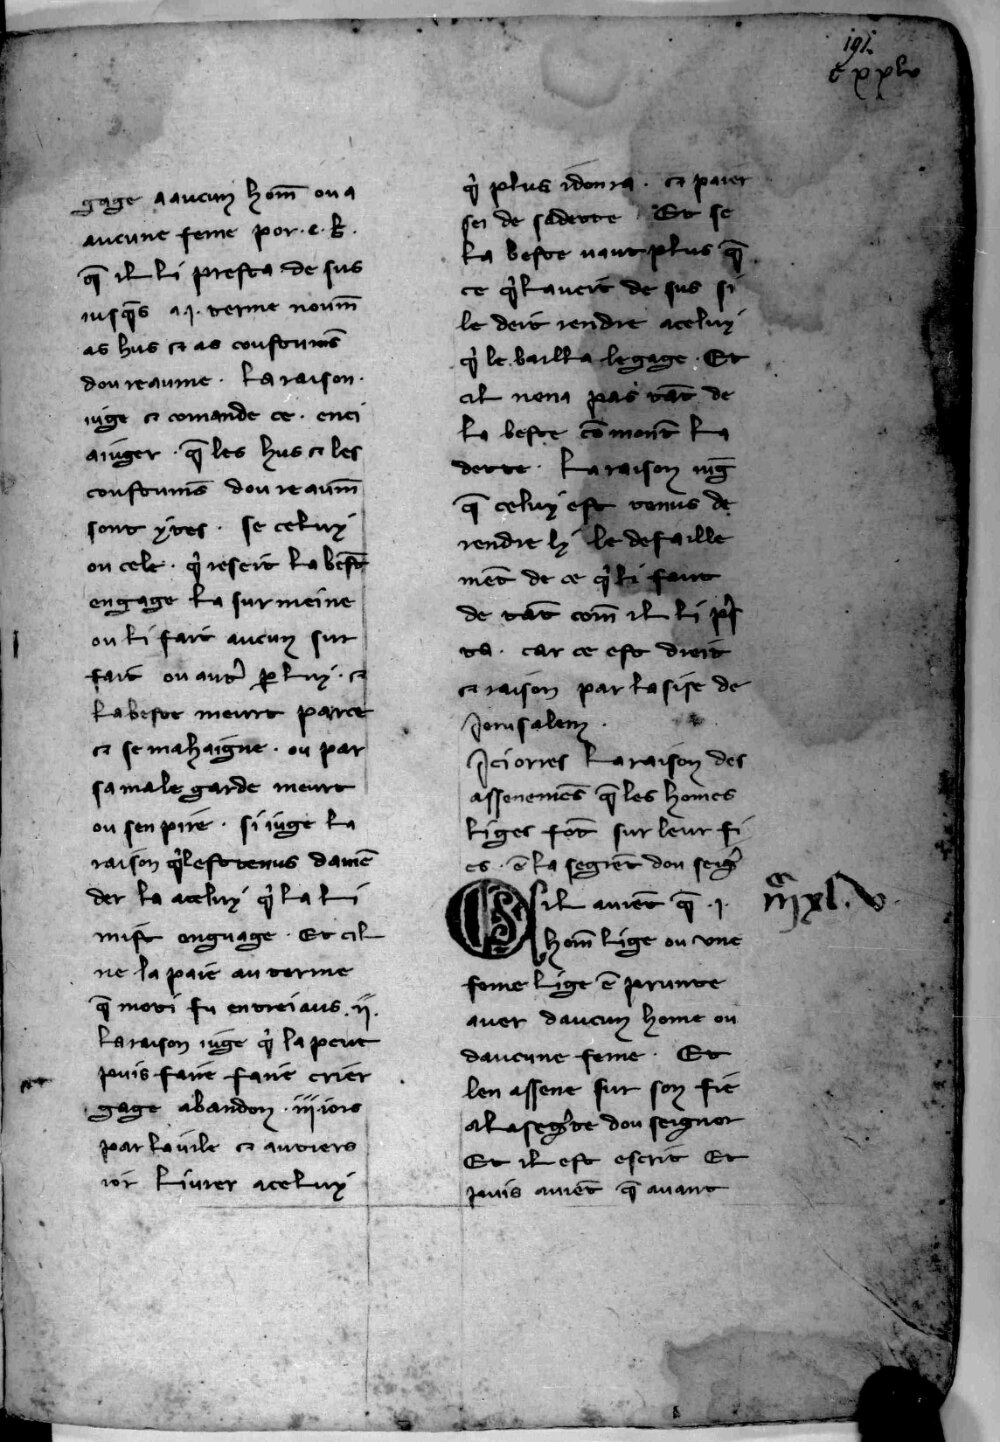 191.
cxxlv
gage a aucun hom̅ ou a
aucune feme por .c. b̅.
q̅ il li presta de sus
iusq̅s a .i. terme noum̅
as hus ⁊ as coustum̅s
dou reaume . La raison .
iuge ⁊ comande ce . enci
a iuger . q̅ les hus ⁊ les
coustum̅s dou reaum̅
sont ytes . se celuy
ou cele . q̓ reseit la best̅
engage la sur meine
ou li fait aucun sur
fait ou aut̓ ꝑ luy . ⁊
la beste meurt par ce
⁊ se mahaigne . ou par
sa male garde meurt
ou sen pire . si iuge la
raison q̓l est tenus damē
der la a celuy q̓ la li
mist enguage . Et cil
ne la paie au terme
q̅ moti fu entreiaus .ii.
La raison iuge q̓ la peut
puis faire faire crier
gage abandon . iii iors
par la vile ⁊ au tiers
ior livrer a celuy
q̓ plus i donra . ⁊ paier
sei de sa dette Et se
la beste vaut plus q̅
ce q̓l aveit de sus si
le deit rendre a celuy
q̓ le bailla le gage . Et
cil nen a pas tāt de
la beste cō mont la
dette . La raison iug̅
q̅ celuy est tenus de
rendre ly le defaille
mēt de ce q̓ li faut
de tāt com̅ il li p̓s
ta . car ce est dreit
⁊ raison par lasise de
Jerusalem .
Ici orres la raison des
assenemēs q̅ les homes
liges fōt sur leur fi
es . ē la segrēt dou seig̓
S il avient q̅ .i.
hom̅ lige ou une
feme lige ē prunte
aver daucun home ou
daucune feme . Et
len assene sur son fie
a la seg̓te dou seignor
Et il est escrit Et
puis aviēt q̅ avant
xl. v.